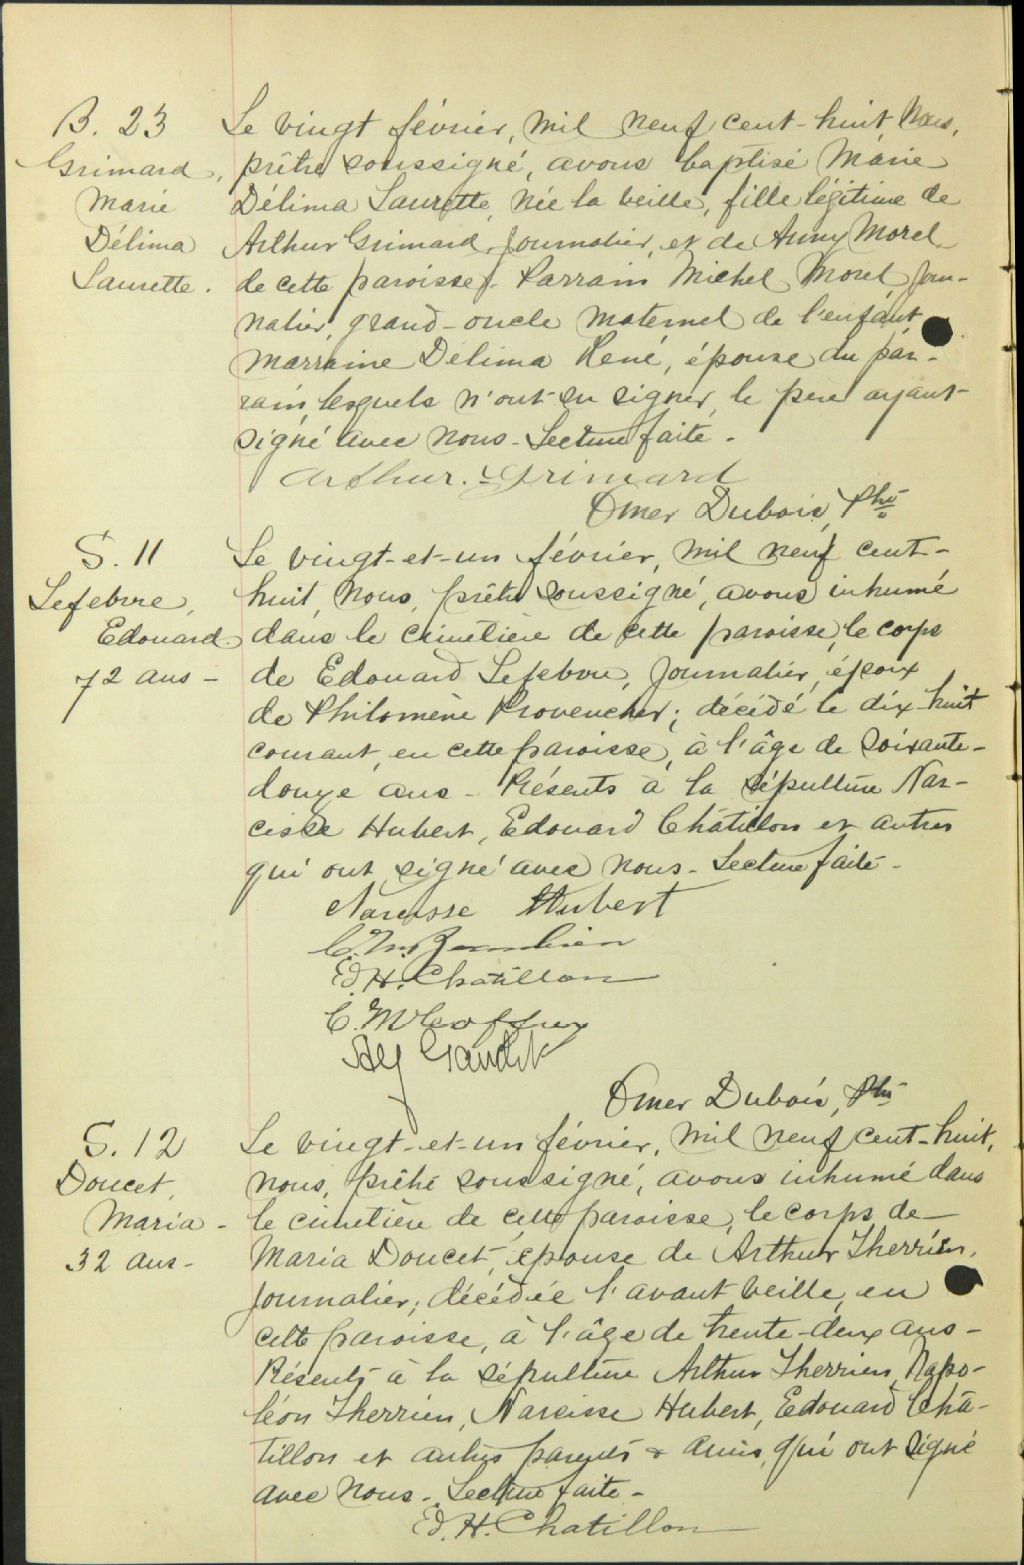 B. 23
Grimard,
Marie
Délima
Laurette.
Le vingt février, mil neuf cent-huit, Nous,
prêtre soussigné, avons baptisé Marie
Délima Laurette, née la veille, fille légitime de
Arthur Grimard, journalier, et de Anny Morel,
de cette paroisse. Parrain Michel Morel jour-
nalier, grand-oncle maternel de l'enfant,
marraine Délima René, épouse du par-
rain, lesquels n'ont su signer, le père ayant
signé avec nous. Lecture faite.
Arthur. Grimard
Omer Dubois, Ptre
S. 11
Lefebvre,
Edouard
72 ans -
Le vingt-et-un février, mil neuf cent-
huit, Nous, prêtre soussigné, avons inhumé
dans le cimetière de cette paroisse, le corps
de Edouard Lefebvre, journalier, époux
de Philomène Provencher; décédé le dix-huit
courant, en cette paroisse, à l'âge de soixante-
douze ans - Présents à la sépulture Nar-
cisse Hubert, Edouard Châtillon et autres
qui ont signé avec nous. Lecture faite -
Narcisse Hubert
Ed. H. Chatillon
Omer Dubois, Ptre
S. 12
Doucet,
Maria -
32 ans -
Le vingt-et-un février, mil neuf cent-huit,
nous, prêtre soussigné, avons inhumé dans
le cimetière de cette paroisse, le corps de
Maria Doucet, épouse de Arthur Therrien,
journalier; décédée l'avant veille, en
cette paroisse, à l'âge de trente-deux ans -
Présents à la sépulture Arthur Therrien, Napo-
léon Therrien, Narcisse Hubert, Edouard Châ-
tillon et autres parents & amis, qui ont signé
avec nous. Lecture faite -
Ed. H. Chatillon